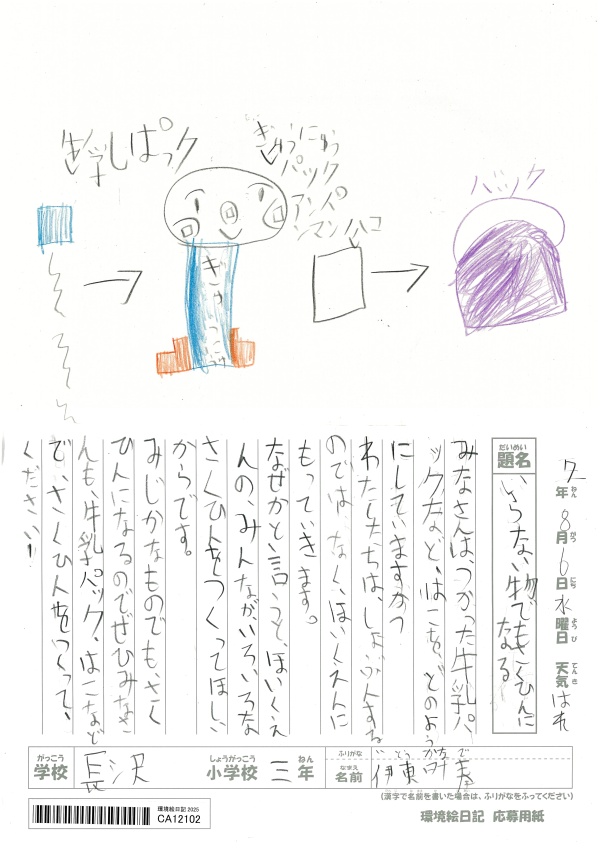 牛学しぱっク
ぎゅうにゅう
パック
アンパ
ンマン
ハコ
バック
ぎゅ
7年8月6日水曜日 天気はれ
ねん がつ にち ようび てんき
だいめい
題名
いらない物でもさくひんに
なる
みなさんは、つかった牛乳パ
ックなど、はこを、どのよう
にしていますか?
わたしたちは、しょぶんする
のでは、なく、ほいくえんに
もっていきます。
なぜかと言うと、ほいくえ
んの、みんながいろいろな
さくひんをつくってほしい
からです。
みじかなものでも、さく
ひんになるのでぜひみなさ
んも、牛乳パック、はこなど
で、さくひんをつくって、
ください!
がっこう
学校
長沢
しょうがっこう
小学校
三
ねん
年
ふりがな
なまえ
名前
伊東
(漢字で名前を書いた場合は、ふりがなをふってください)
環境絵日記 2025
CA12102
環境絵日記 応募用紙